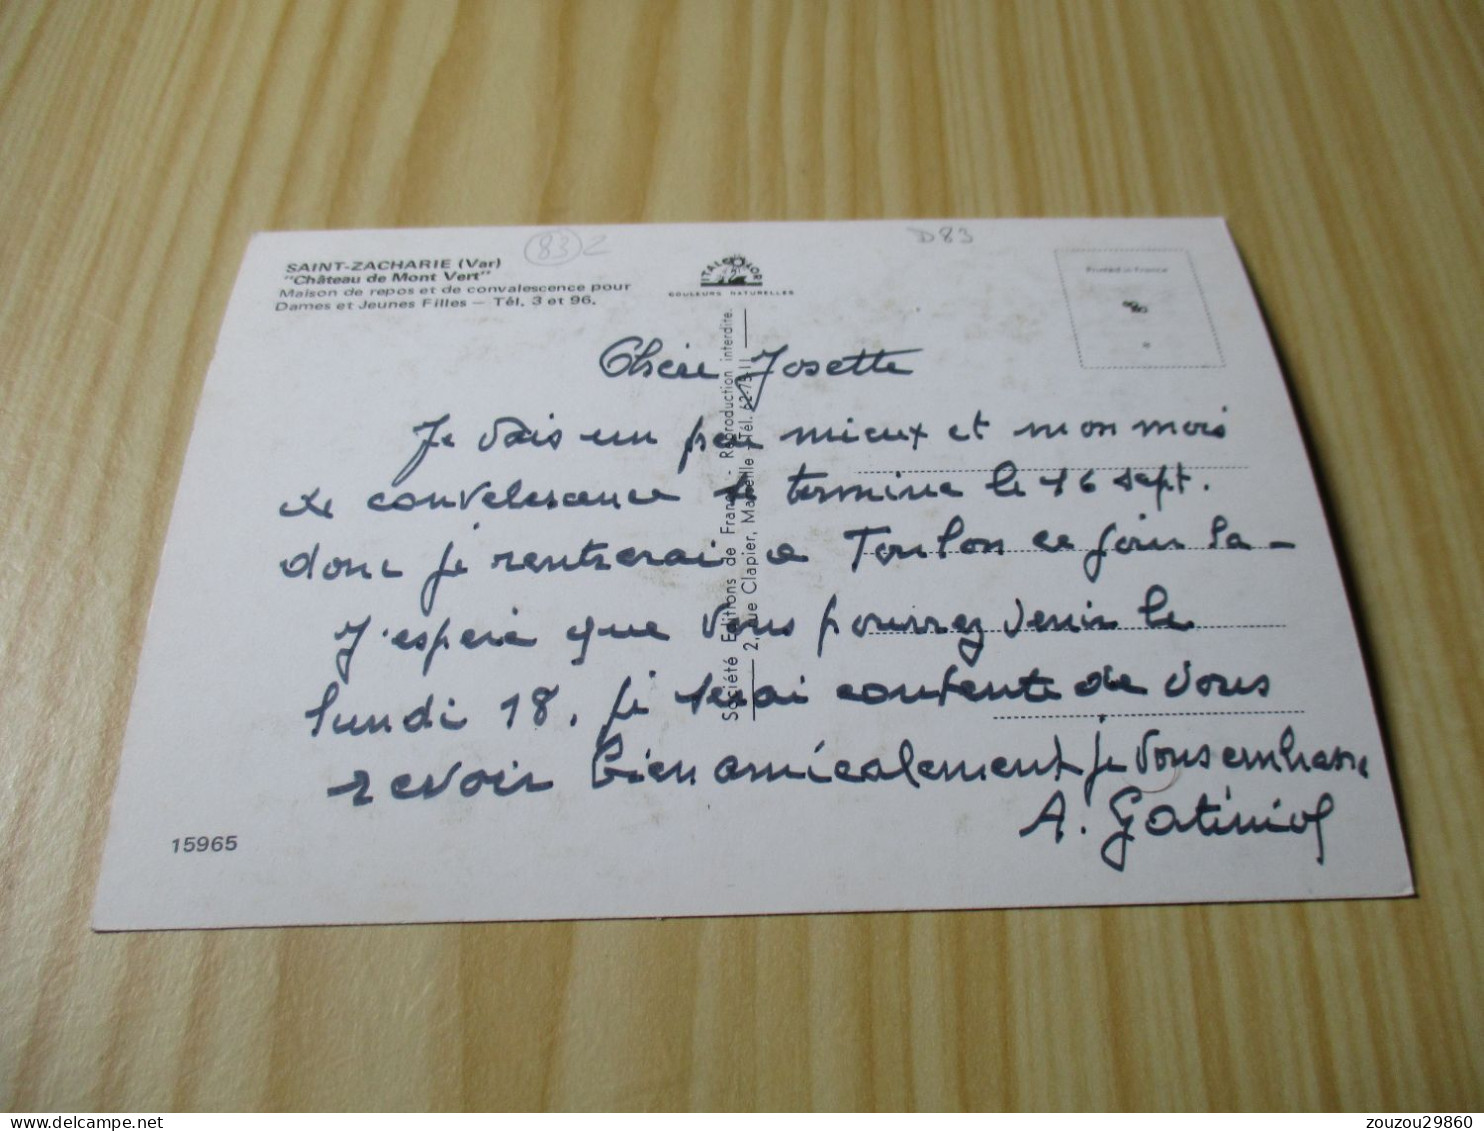 83 2
D83
SAINT-ZACHARIE (Var)
"Château de Mont Vert"
Maison de repos et de convalescence pour
Dames et Jeunes Filles — Tél. 3 et 96.
COULEURS NATURELLES
Printed in France
Société Editions de France - Reproduction interdite.
2, rue Clapier, Marseille - Tél. 62-73-11
Chère Josette
Je vais un peu mieux et mon mois
de convelescence se termine le 16 sept.
donc je rentrerai a Toulon ce jour la -
J'espère que vous pourrez venir le
lundi 18. je serai contente de vous
revoir bien amicalement je vous embrasse
A. Gatiniol
15965
zouzou29860